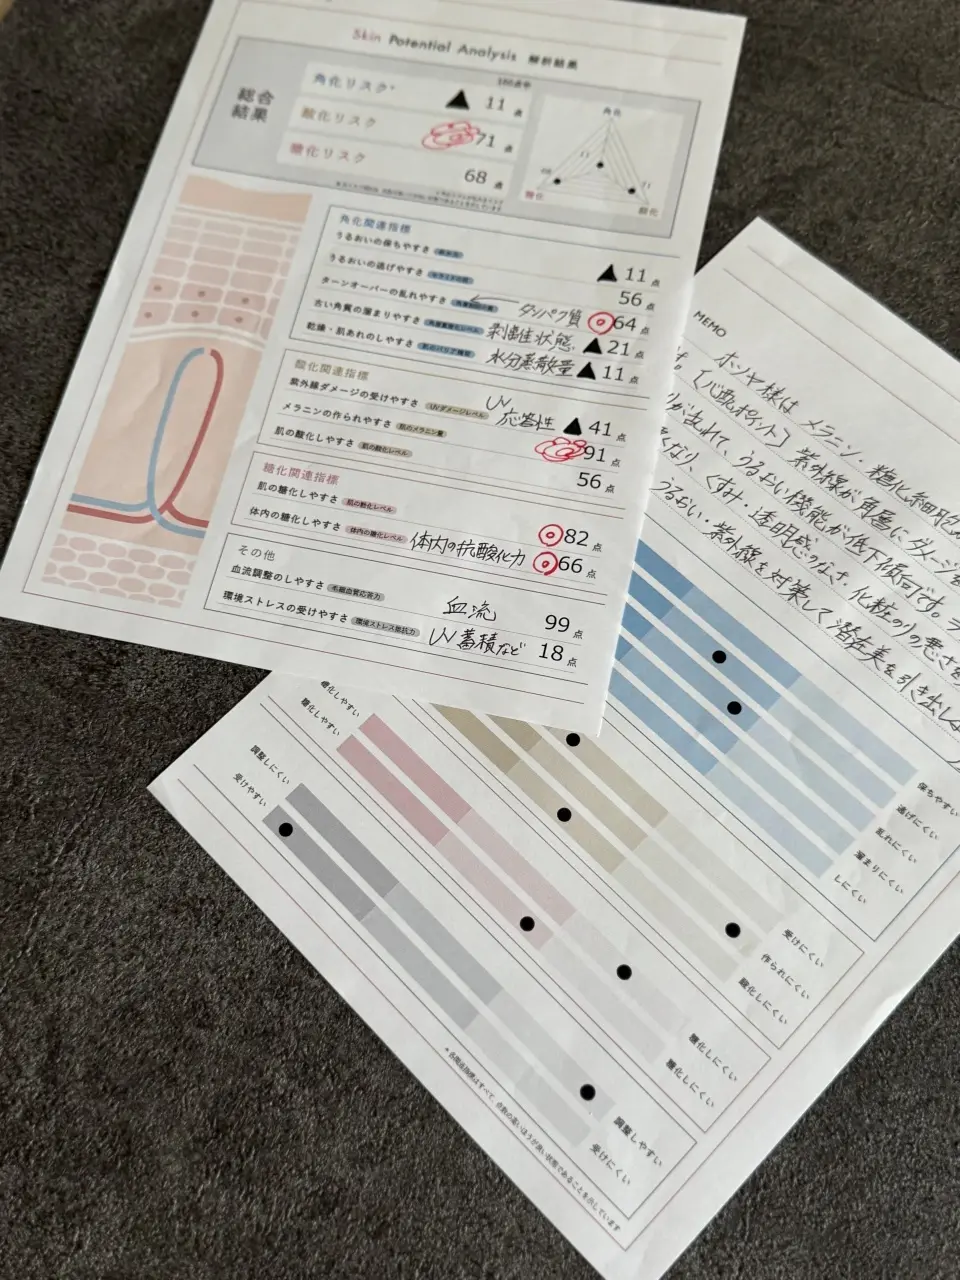 Skin Potential Analysis 解析結果
総合
結果
100点中
角化リスク* ▲ 11 点
酸化リスク 71 点
糖化リスク 68 点
角化
11
68
71
糖化
酸化
角化関連指標
うるおいの保ちやすさ ▲ 11 点
うるおいの逃げやすさ 56 点
ターンオーバーの乱れやすさ ← タンパク質 ◎ 64 点
古い角質の溜まりやすさ 剥離性状態 ▲ 21 点
乾燥・肌あれのしやすさ 肌のバリア機能 水分蒸散量 ▲ 11 点
酸化関連指標
紫外線ダメージの受けやすさ UVダメージレベル UV応答性 ▲ 41 点
メラニンの作られやすさ 肌のメラニン量 91 点
肌の酸化しやすさ 肌の酸化レベル 56 点
糖化関連指標
肌の糖化しやすさ ◎ 82 点
体内の糖化しやすさ 体内の糖化レベル 体内の抗酸化力 ◎ 66 点
その他
血流調整のしやすさ 毛細血管応答力 血流 99 点
環境ストレスの受けやすさ 環境ストレス抵抗力 UV蓄積など 18 点
MEMO
ホシヤ様は メラニン・糖化・細胞
[心配ポイント] 紫外線が角層にダメージを
が乱れて、うるおい機能が低下傾向です。
なり、くすみ・透明感のなさ、化粧のりの悪さを
うるおい・紫外線を対策して潜在美を引き出しま
保ちやすい
逃げにくい
乱れにくい
溜まりにくい
しにくい
受けにくい
作られにくい
酸化しにくい
糖化しやすい
糖化しやすい
糖化しにくい
糖化しにくい
調整しにくい
受けやすい
調整しやすい
受けにくい